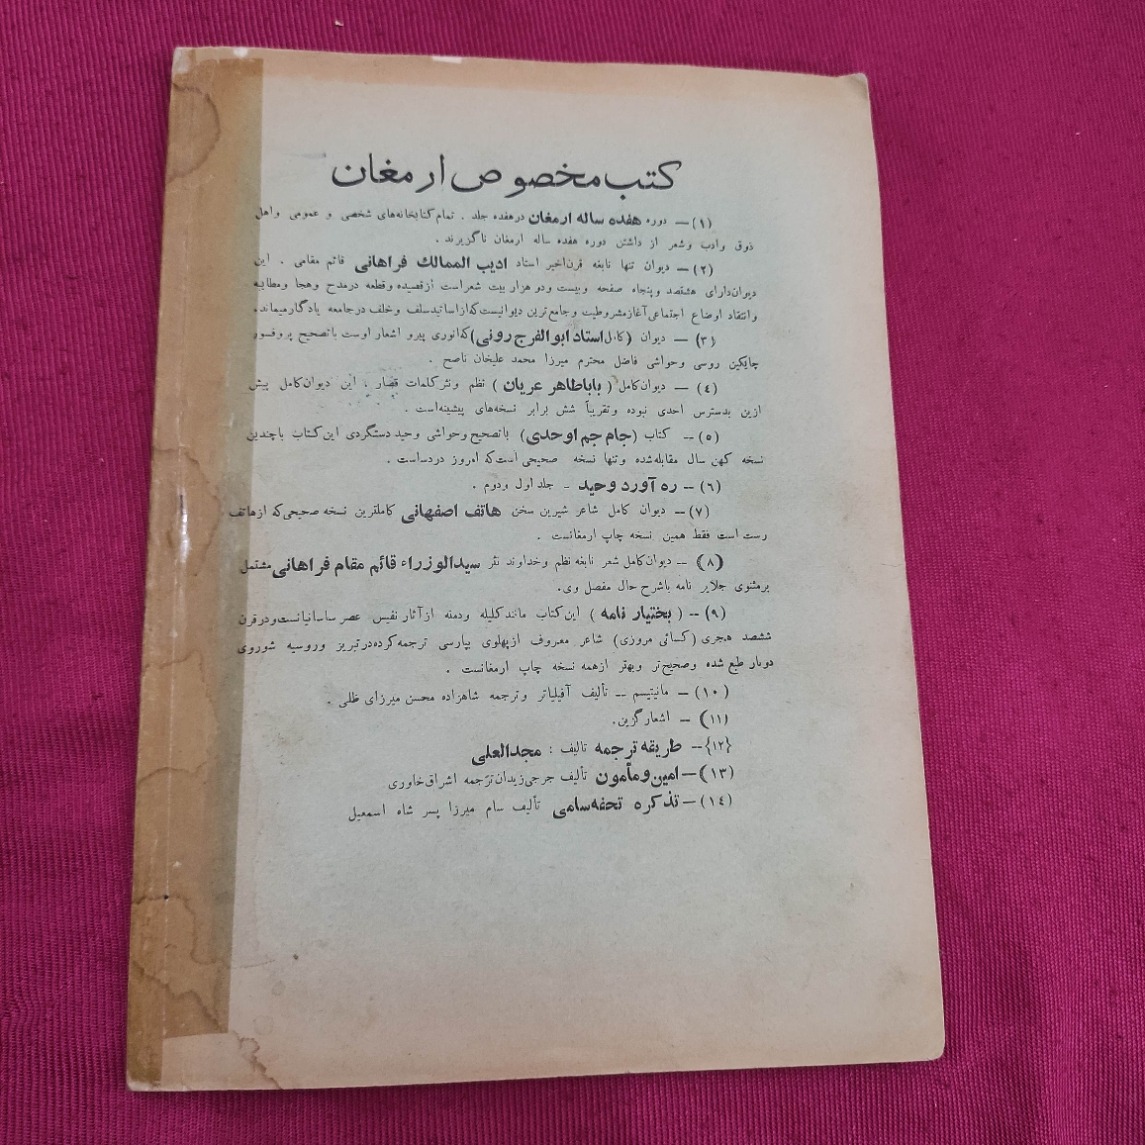 کتب مخصوص ارمغان
(۱) — دوره هفده ساله ارمغان درهفده جلد . تمام کتابخانه‌های شخصی و عمومی واهل
ذوق وادب وشعر از داشتن دوره هفده ساله ارمغان ناگزیرند .
(۲) — دیوان تنها نابغه قرن‌اخیر استاد ادیب الممالک فراهانی قائم مقامی . این
دیوان‌دارای هشتصد وپنجاه صفحه وبیست ودو هزار بیت شعراست ازقصیده وقطعه درمدح وهجا ومطایبه
وانتقاد اوضاع اجتماعی آغازمشروطیت وجامع‌ترین دیوانیست که‌ازاساتیدسلف وخلف درجامعه یادگارمیماند.
(۳) — دیوان (کامل استاد ابوالفرج رونی) که‌انوری پیرو اشعار اوست باتصحیح پروفسور
چایکین روسی وحواشی فاضل محترم میرزا محمد علیخان ناصح .
(٤) — دیوان کامل (باباطاهر عریان) نظم ونثر کلمات قصار . این دیوان کامل پیش
ازین بدسترس احدی نبوده وتقریباً شش برابر نسخه‌های پیشینه‌است .
(٥) — کتاب (جام جم اوحدی) باتصحیح وحواشی وحید دستگردی این‌کتاب باچندین
نسخه کهن سال مقابله‌شده وتنها نسخه صحیحی است‌که امروز دردساست .
(٦) — ره آورد وحید — جلد اول ودوم .
(۷) — دیوان کامل شاعر شیرین سخن هاتف اصفهانی کاملترین نسخه صحیحی‌که ازهاتف
رست است فقط همین نسخه چاپ ارمغانست .
(۸) — دیوان‌کامل شعر نابغه نظم وخداوند نثر سیدالوزراء قائم مقام فراهانی مشتمل
برمثنوی جلایر نامه باشرح حال مفصل وی.
(۹) — (بختیار نامه) این‌کتاب مانند کلیله ودمنه ازآثار نفیس عصر ساسانیانست‌ودرقرن
ششصد هجری (کسائی مروزی) شاعر معروف ازپهلوی بپارسی ترجمه‌کرده‌درتبریز وروسیه شوروی
دوبار طبع شده وصحیح‌تر وبهتر ازهمه نسخه چاپ ارمغانست .
(۱۰) — مانیتیسم — تألیف آفیلیاتر وترجمه شاهزاده محسن میرزای ظلی .
(۱۱) — اشعار گزین.
{۱۲}— طریقه ترجمه تالیف : مجدالعلی
(۱۳)— امین ومأمون تألیف جرجی‌زیدان ترجمه اشراق‌خاوری
(۱٤)— تذکره تحفه‌سامی تألیف سام میرزا پسر شاه اسمعیل